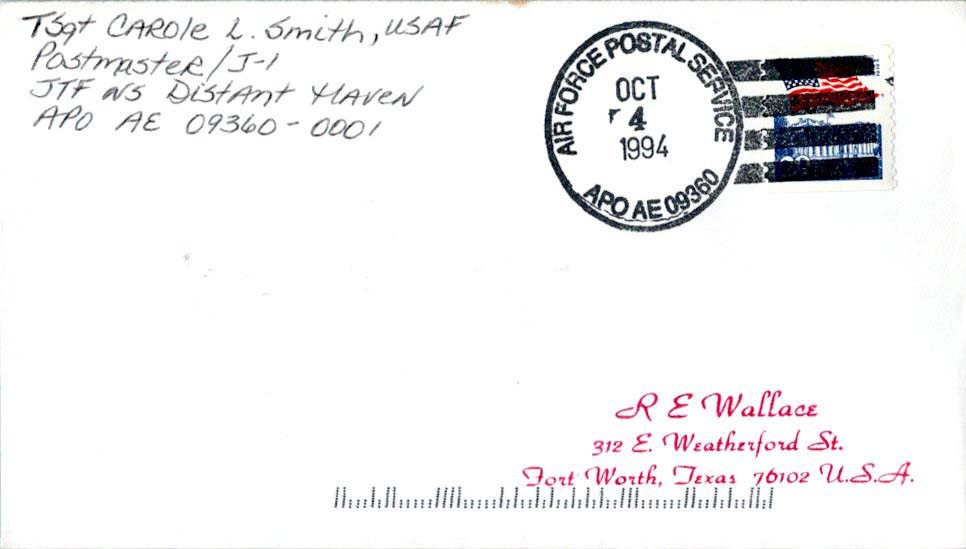 TSgt CAROle L. Smith, USAF
Postmaster/J-1
JTF Distant HAVEN
APO AE 09360-0001
AIR FORCE POSTAL SERVICE
OCT
4
1994
APO AE 09360
R E Wallace
312 E. Weatherford St.
Fort Worth, Texas 76102 U.S.A.